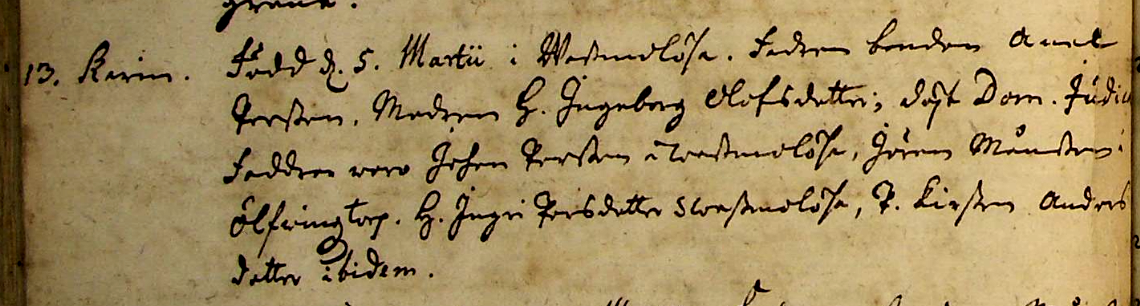 13. Karin. Född d. 5. Martii i Westmolösa. Fadren bonden Axel
Persson, Modren H. Ingeborg Olofsdotter, döpt Dom. Judica
Faddrar woro Johan Persson i Westmolösa, Jöran Månsson i
Elfwingtorp. H. Ingri Persdotter i Westmolösa, P. Kirsten Anders
dotter ibidem.